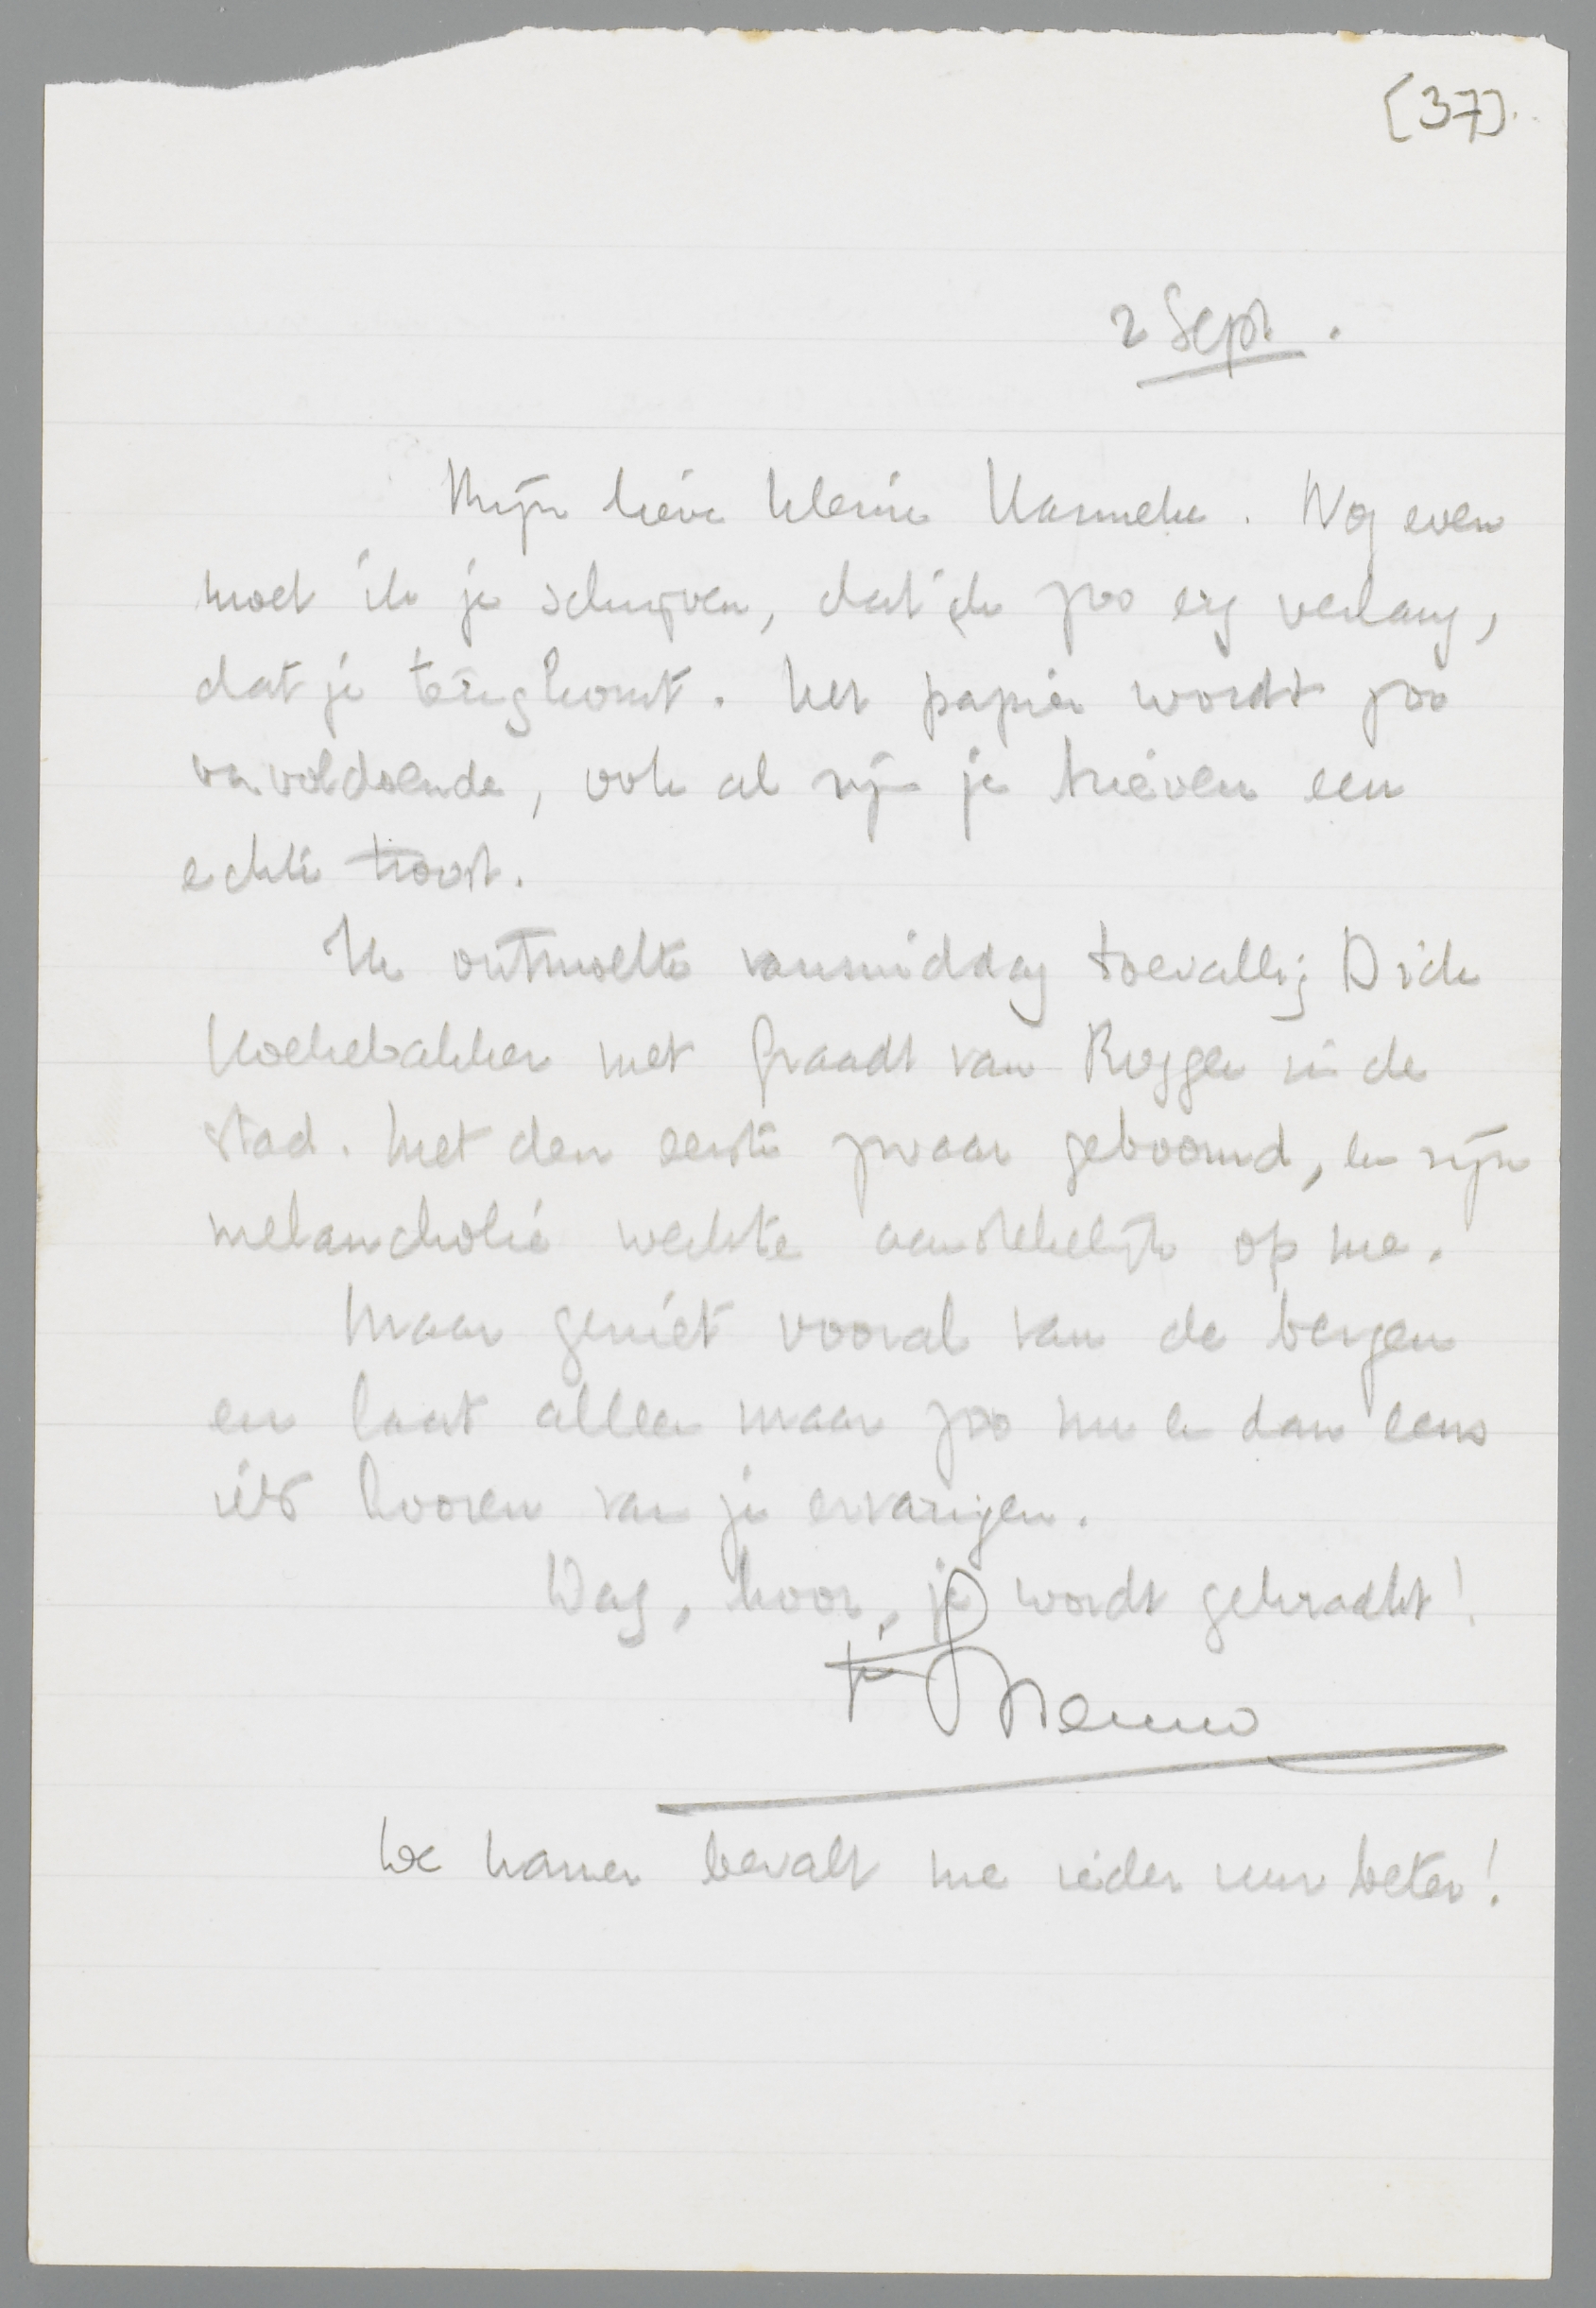 [37].
2 Sept.
Mijn lieve kleine Hanneke. Nog even
moet ik je schrijven, dat ik zoo erg verlang,
dat je terugkomt. Het papier wordt zoo
onvoldoende, ook al zijn je brieven een
echte troost.
Ik ontmoette vanmiddag toevallig Dick
Koekebakker met Graadt van Roggen in de
stad. Met den eerste zwaar geboomd, en zijn
melancholie werkte aanstekelijk op me.
Maar geniet vooral van de bergen
en laat alleen maar zoo nu en dan eens
iets hooren van je ervaringen.
Dag, hoor, je wordt gekracht!
je Menno
De kamer bevalt me ieder uur beter!